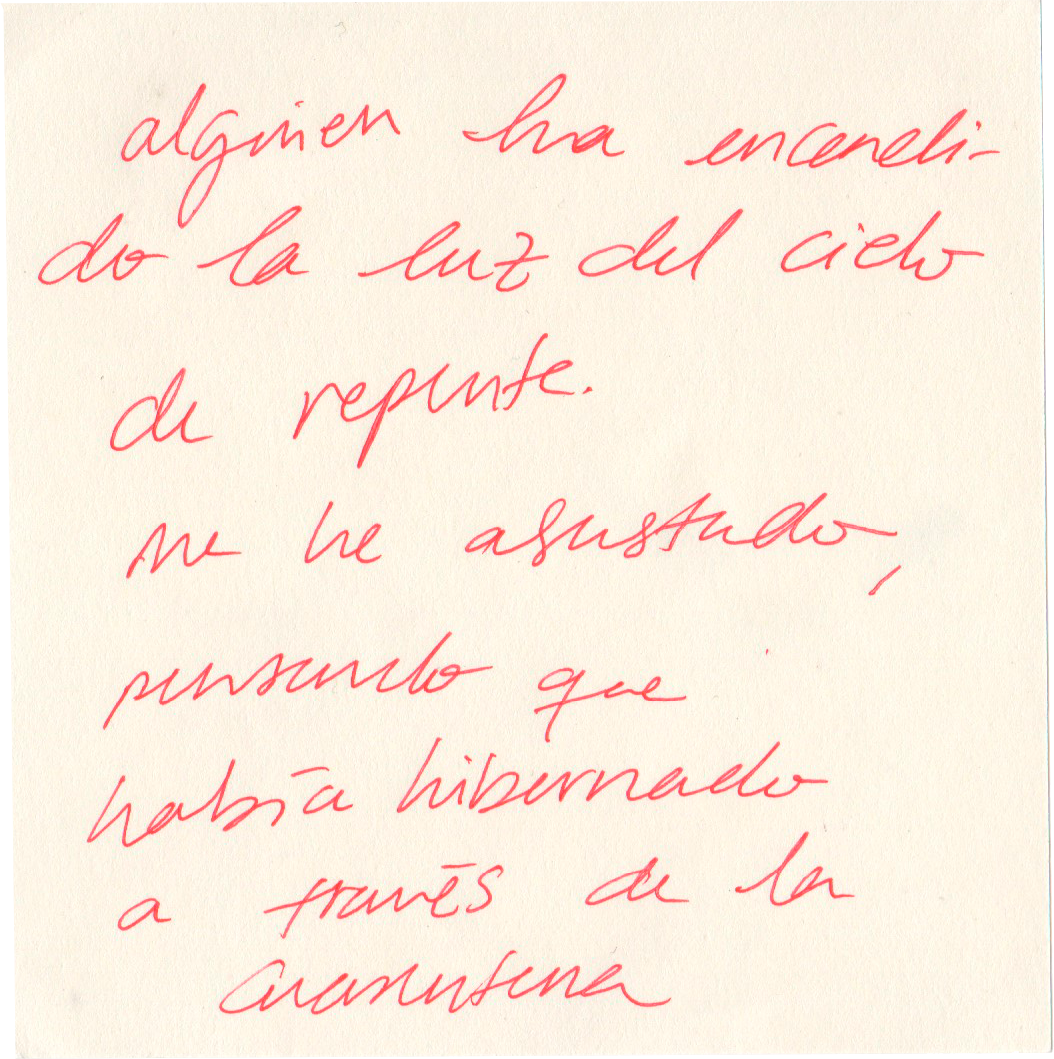 alguien ha encendi-
do la luz del cielo
de repente.
me he asustado,
pensando que
había hibernado
a través de la
cuarentena